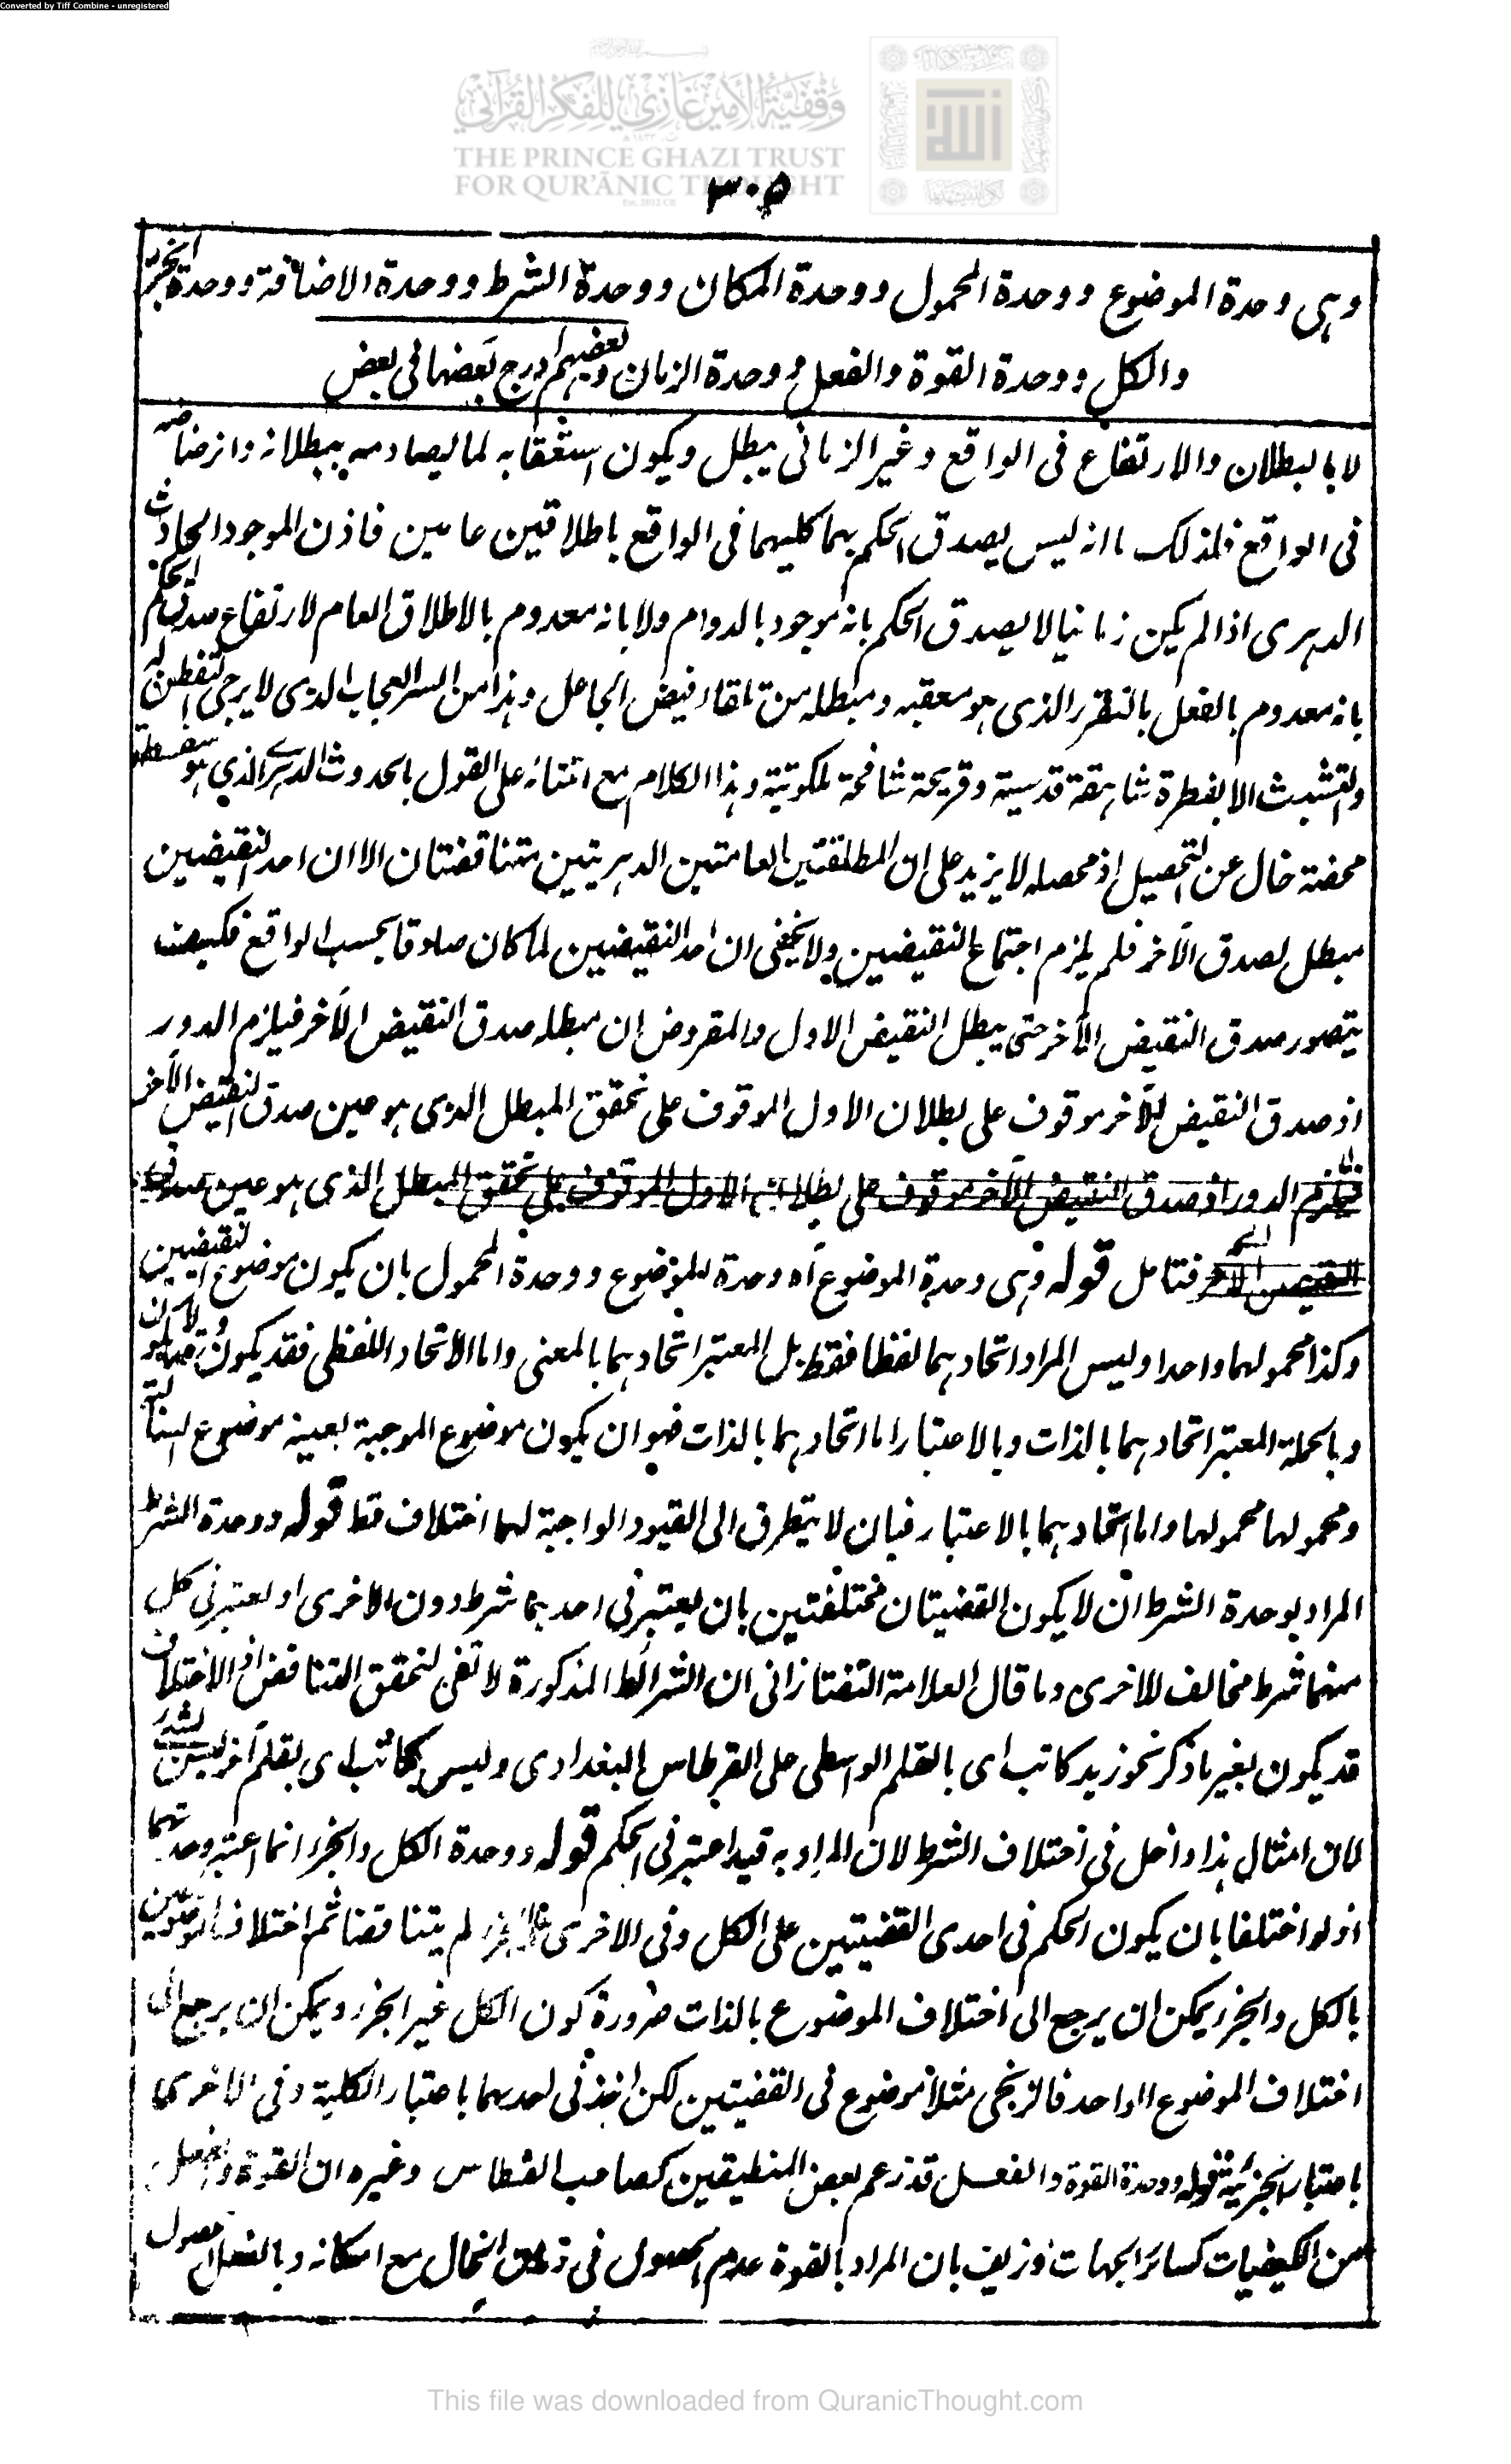 Converted by Tiff Combine - unregistered
وقفية الأمير غازي للفكر القرآني
THE PRINCE GHAZI TRUST
FOR QUR'ĀNIC THOUGHT
٣٠٥
وہی وحدة الموضوع ووحدة المحمول ووحدة المکان ووحدة الشرط ووحدة الاضافة ووحدة الجزء
والکل ووحدة القوة والفعل ووحدة الزمان وبعضہم ادرج بعضہا فی بعض
لا بالبطلان والارتفاع فی الواقع وغیر الزمانی یبطل ویکون استعقابہ لما یصادمہ ببطلانہ وانرضاضہ
فی الواقع فلذلک ما انہ لیس یصدق الحکم بہما کلیہما فی الواقع باطلاقین عامین فاذن الموجود الحادث
الدہری اذا لم یکن زمانیا لا یصدق الحکم بانہ موجود بالدوام ولا بانہ معدوم بالاطلاق العام لارتفاع صدق الحکم
بانہ معدوم بالفعل بالتقرر الذی ہو معقبہ ومبطلہ من تلقاء فیض الجاعل وہذا من السر العجاب الذی لا یرجی التفطن لہ
والتشبث الا بفطرة شاہقة قدسیة وقریحة شافخة ملکوتیة وہذا الکلام مع ابتنائہ علی القول بالحدوث الدہری الذی ہو سفسطة
محضة خال عن التحصیل اذ محصلہ لا یزید علی ان المطلقتین العامتین الدہریتین متناقضتان الا ان احد النقیضین
مبطل لصدق الآخر فلم یلزم اجتماع النقیضین ولا یخفی ان احد النقیضین لما کان صادقا بحسب الواقع فکیف
یتصور صدق النقیض الآخر حتی یبطل النقیض الاول والمفروض ان مبطلہ صدق النقیض الآخر فیلزم الدور
اذ صدق النقیض الآخر موقوف علی بطلان الاول الموقوف علی تحقق المبطل الذی ہو عین صدق النقیض الآخر
فیلزم الدور اذ صدق النقیض الآخر موقوف علی بطلان الاول الموقوف علی تحقق المبطل الذی ہو عین صدق
النقیض الآخر فتامل قولہ وہی وحدة الموضوع آہ وحدة الموضوع ووحدة المحمول بان یکون موضوع النقیضین
وکذا محمولہما واحدا ولیس المراد اتحادہما لفظا فقط بل المعتبر اتحادہما بالمعنی واما الاتحاد اللفظی فقد یکون وقد لا یکون
وبالجملة المعتبر اتحادہما بالذات وبالاعتبار اما اتحادہما بالذات فہو ان یکون موضوع الموجبة بعینہ موضوع السالبة
ومحمولہا محمولہا واما اتحادہما بالاعتبار فبان لا یتطرق الی القیود الواجبة لہما اختلاف قط قولہ ووحدة الشرط
المراد بوحدة الشرط ان لا یکون القضیتان مختلفتین بان یعتبر فی احدہما شرط دون الاخری او یعتبر فی کل
منہما شرط مخالف للاخری وما قال العلامة التفتازانی ان الشرائط المذکورة لا تفی لتحقق التناقض اذ الاختلاف
قد یکون بغیر ما ذکر نحو زید کاتب ای بالقلم الواسطی علی القرطاس البغدادی ولیس بکاتب ای بقلم آخر لیس بشیء
لان امثال ہذا داخل فی اختلاف الشرط لان المراد بہ قید اعتبر فی الحکم قولہ ووحدة الکل والجزء انما اعتبر وحدتہما
اذ لو اختلفا بان یکون الحکم فی احدی القضیتین علی الکل وفی الاخری علی الجزء لم یتناقضا ثم اختلاف الموضوعین
بالکل والجزء یمکن ان یرجع الی اختلاف الموضوع بالذات ضرورة کون الکل غیر الجزء ویمکن ان یرجع الی
اختلاف الموضوع الواحد فالزنجی مثلا موضوع فی القضیتین لکن اخذ فی احدہما باعتبار الکلیة وفی الاخری
باعتبار الجزئیة قولہ ووحدة القوة والفعل قد زعم بعض المنطیقین کصاحب القسطاس وغیرہ ان القوة والفعل
من الکیفیات کسائر الجہات وزیف بان المراد بالقوة عدم الحصول فی زمان الحال مع امکانہ وبالفعل حصول
This file was downloaded from QuranicThought.com